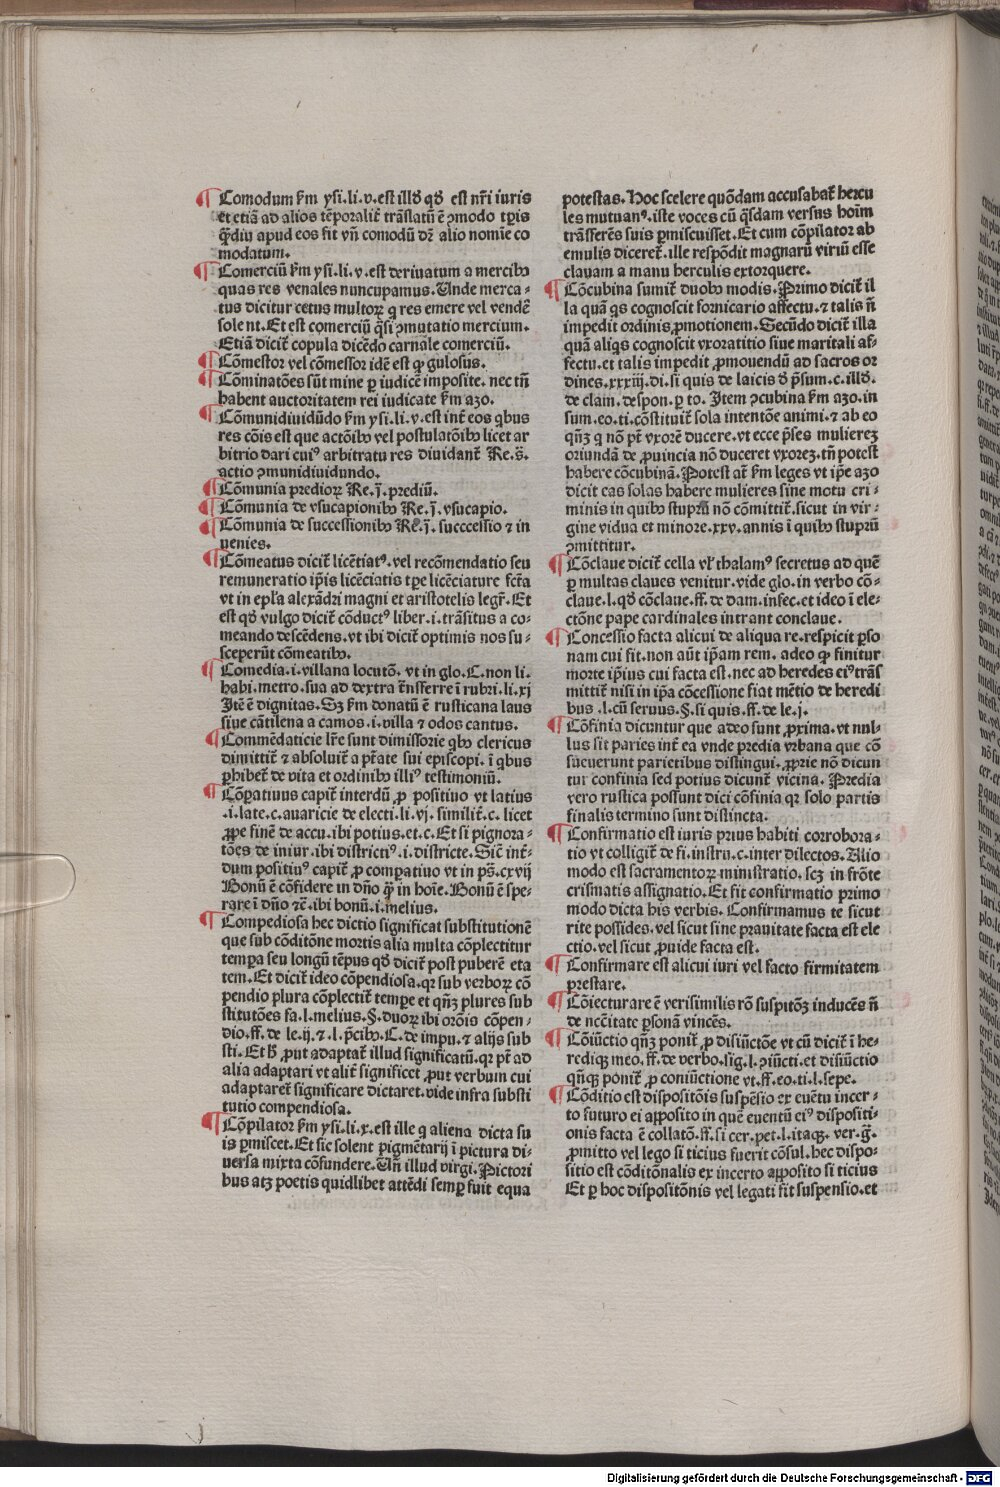 ¶ Comodum ẜm ysi.li.v.est illd̄ qd̄ est nr̄i iuris
et etiā ad alios tēporalit̄ trāslatū ē ꝯmodo tꝑis
q̄diu apud eos fit vn̄ comodū dr̄ alio nomīe co
modatum.
¶ Comerciū ẜm ysi.li.v.est deriuatum a mercibꝫ
quas res venales nuncupamus.Unde merca⸗
tus dicitur cetus multoꝝ q̄ res emere vel vendē
solent.Et est comerciū q̄si ꝯmutatio mercium.
Etiā dicit̄ copula dicēdo carnale comerciū.
¶ Cōmestor vel cōmessor idē est ꝙ gulosus.
¶ Cōminatōes sūt mine ꝑ iudicē imposite.nec tn̄
habent auctoritatem rei iudicate ẜm azo.
¶ Cōmunidiuidūdo ẜm ysi.li.v.est int̄ eos qbus
res cōis est que actōibꝫ vel postulatōibꝫ licet ar
bitrio dari cuiꝰ arbitratu res diuidant̄ Re.s̄.
actio ꝯmunidiuidundo.
¶ Cōmunia predioꝝ Re.j̄.prediū.
¶ Cōmunia de vsucapionibꝫ Re.j̄.vsucapio.
¶ Cōmunia de successionibꝫ Re.j̄.succcessio ⁊ in
uenies.
¶ Cōmeatus dicit̄ licētiatꝰ.vel recōmendatio seu
remuneratio ip̄is licēciatis tꝑe licēciature fcta
vt in epl̄a alexādri magni et aristotelis legr̄.Et
est qd̄ vulgo dicit̄ cōductꝰ liber.i.trāsitus a co⸗
meando descēdens.vt ibi dicit̄ optimis nos su⸗
sceperūt cōmeatibꝫ.
¶ Comedia.i.villana locutō. vt in glo.C.non li.
habi.metro.sua ad dextra t̄nsferre ī rubri.li.xj
Itē ē dignitas.Sꝫ ẜm donatū ē rusticana laus
siue cātilena a camos.i.villa ⁊ odos cantus.
¶ Commēdaticie lr̄e sunt dimissorie qbꝫ clericus
dimittit̄ ⁊ absoluit̄ a ptāte sui episcopi. ī qbus
ꝓhibet̄ de vita et ordinibꝫ illiꝰ testimoniū.
¶ Cōꝑatiuus capit̄ interdū ꝓ positiuo vt latius
.i.late.c.auaricie de electi.li.vj. similit̄.c. licet
ꝓpe finē de accu.ibi potius.et.c.Et si pignora⸗
tōes de iniur.ibi districtiꝰ.i.districte.Sic int̄⸗
dum positiuꝰ capit̄ ꝓ comꝑatiuo vt in ps̄.cxvij
Bonū ē cōfidere in dn̄o q̄ in hoīe.Bonū ē spe⸗
rare ī dn̄o ⁊c̄.ibi bonū.i.melius.
¶ Compediosa hec dictio significat substitutionē
que sub cōditōne mortis alia multa cōplectitur
temꝑa seu longū tēpus qd̄ dicit̄ post puberē eta
tem.Et dicit̄ ideo cōpendiosa.qꝛ sub verboꝝ cō
pendio plura cōplectit̄ tempe et qn̄ꝫ plures sub
stitutōes fa.l.melius.§.duoꝝ ibi orōis cōpen⸗
dio.ff.de le.ij.⁊.l.p̄cibꝫ.C.de impu.⁊ alijs sub
sti.Et b̄ ꝓut adaptat̄ illud significatū.qꝛ pt̄ ad
alia adaptari vt alit̄ significet ꝓut verbum cui
adaptaret̄ significare dictaret.vide infra substi
tutio compendiosa.
¶ Cōpilator ẜm ysi.li.x.est ille q̄ aliena dicta su
is ꝑmiscet.Et sic solent pigmētarij ī pictura di⸗
uersa mixta cōfundere.Un̄ illud virgi.Pictori
bus atꝫ poetis quidlibet attēdi semꝑ fuit equa
potestas.Hoc scelere quōdam accusabat̄ hercu
les mutuanꝰ.iste voces cū q̄sdam versus hoīm
trāsferēs suis ꝑmiscuisset.Et cum cōpilator ab
emulis diceret̄.ille respōdit magnarū viriū esse
clauam a manu herculis extorquere.
¶ Cōcubina sumit̄ duobꝫ modis.Primo dicit̄ il
la quā qs cognoscit fornicario affectu.⁊ talis n̄
impedit ordinis ꝓmotionem.Secūdo dicit̄ illa
quā aliqs cognoscit vxoratitio siue maritali af⸗
fectu.et talis impedit ꝓmouendū ad sacros or
dines.xxxiij.di.si quis de laicis ⁊ p̄sum.c.illd̄.
de clam.despon.ꝑ to. Item ꝯcubina ẜm azo.in
sum.eo.ti.cōstituit̄ sola intentōe animi.⁊ ab eo
qn̄ꝫ q̄ nō pt̄ vxorē ducere.vt ecce p̄ses mulierēꝫ
oriundā de ꝓuincia nō duceret vxorēꝫ.tn̄ potest
habere cōcubinā.Potest at̄ ẜm leges vt ip̄e azo
dicit eas solas habere mulieres sine motu cri⸗
minis in quibꝫ stuprū nō cōmittit̄.sicut in vir⸗
gine vidua et minore.xxv.annis ī quibꝫ stuprū
ꝯmittitur.
¶ Cōclaue dicit̄ cella vl̄ thalamꝰ secretus ad quē
ꝑ multas claues venitur.vide glo.in verbo cō⸗
claue.l.qd̄ cōclaue.ff.de dam.infec.et ideo ī ele⸗
ctōne pape cardinales intrant conclaue.
¶ Concessio facta alicui de aliqua re.respicit ꝑso
nam cui fit.non aūt ip̄am rem. adeo ꝙ finitur
morte ip̄ius cui facta est.nec ad heredes eiꝰ trās
mittit̄ nisi in ip̄a cōcessione fiat mētio de heredi
bus .l.cū seruus.§.si quis.ff.de le.j.
¶ Cōfinia dicuntur que adeo sunt ꝓxima.vt nul⸗
lus sit paries int̄ ea vnde predia vrbana que cō
sueuerunt parietibus distingui.ꝓprie nō dicun
tur confinia sed potius dicunt̄ vicina. Predia
vero rustica possunt dici cōfinia qꝛ solo partis
finalis termino sunt distincta.
¶ Confirmatio est iuris prius habiti corrobora⸗
tio vt colligit̄ de fi.instru.c.inter dilectos.Alio
modo est sacramentoꝝ ministratio.scꝫ in frōte
crismatis assignatio.Et fit confirmatio primo
modo dicta his verbis. Confirmamus te sicut
rite possides.vel sicut sine prauitate facta est ele
ctio.vel sicut ꝓuide facta est.
¶ Confirmare est alicui iuri vel facto firmitatem
prestare.
¶ Cōiecturare ē verisimilis rō suspitōꝫ inducēs n̄
de ncc̄itate ꝑsonā vincēs.
¶ Cōiūctio qn̄ꝫ ponit̄ ꝓ disiūctōe vt cū dicit̄ ī he⸗
rediqꝫ meo.ff.de verbo.siḡ.l.ꝯiūcti.et disiūctio
qn̄qꝫ ponit̄ ꝓ coniūctione vt.ff.eo.ti.l.sepe.
¶ Cōditio est dispositōis suspēsio ex euētu incer⸗
to futuro ei apposito in quē euentū eiꝰ dispositi⸗
onis facta ē collatō.ff.si cer.pet.l.itaqꝫ. ver.g̅.
ꝓmitto vel lego si ticius fuerit cōsul.hec dispo⸗
sitio est cōditōnalis ex incerto apposito si ticius
Et ꝑ hoc dispositōnis vel legati fit suspensio.et
Digitalisierung gefördert durch die Deutsche Forschungsgemeinschaft - DFG